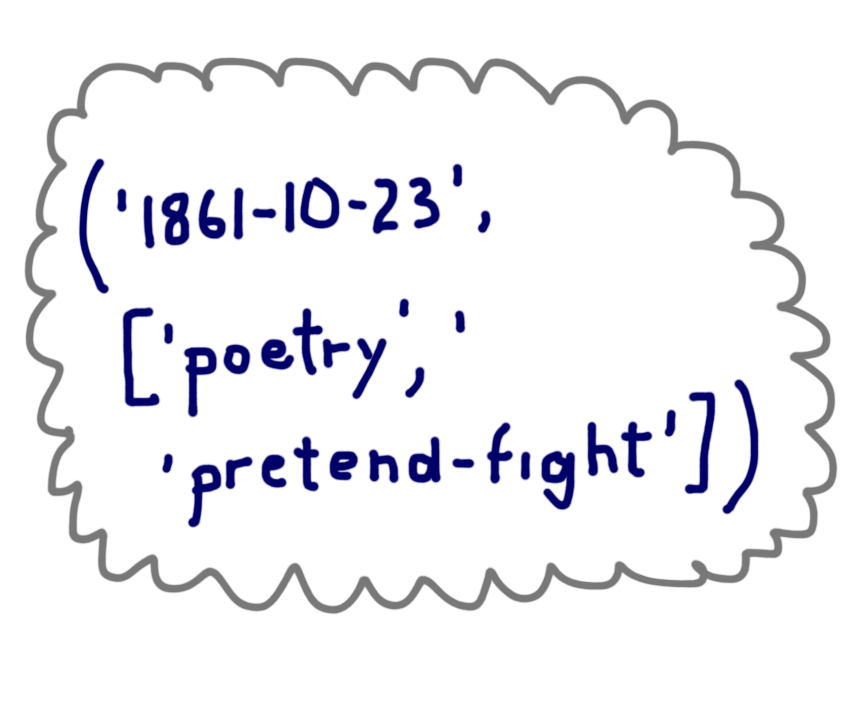 ('1861-10-23',
['poetry', '
'pretend-fight'])